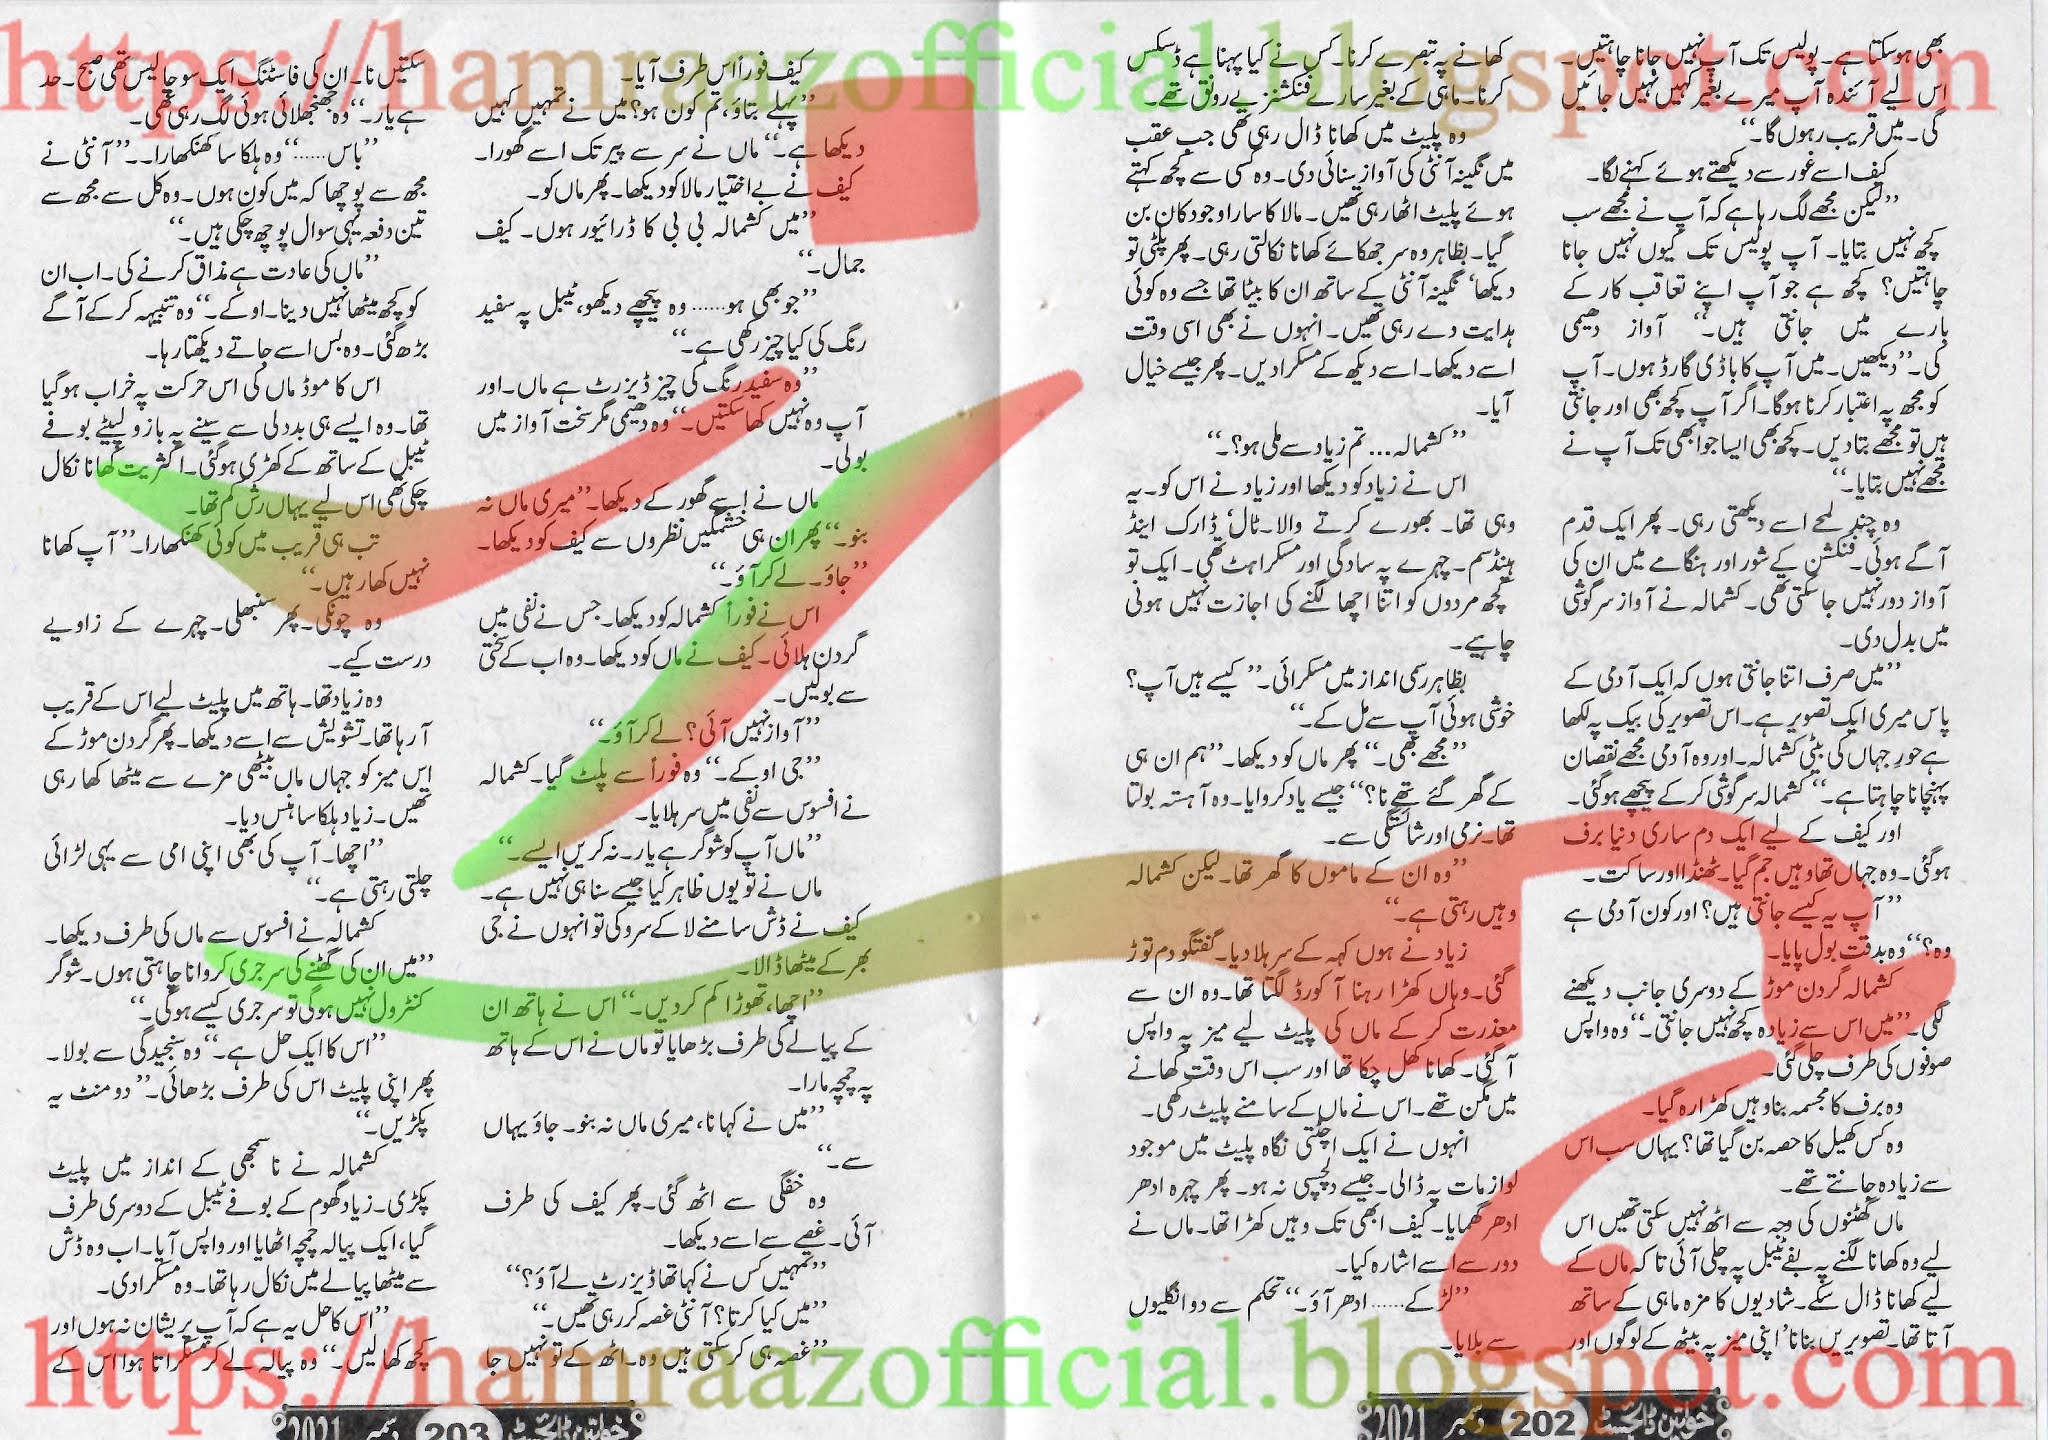 https://hamraazofficial.blogspot.com
بھی ہوسکتا ہے۔ پولیس تک آپ نہیں جانا چاہتیں۔
اس لیے آئندہ آپ میرے بغیر کہیں نہیں جائیں
گی۔ میں قریب رہوں گا۔“
کیف اسے غور سے دیکھتے ہوئے کہنے لگا۔
”لیکن مجھے لگ رہا ہے کہ آپ نے مجھے سب
کچھ نہیں بتایا۔ آپ پولیس تک کیوں نہیں جانا
چاہتیں؟ کچھ ہے جو آپ اپنے تعاقب کار کے
بارے میں جانتی ہیں۔“ آواز دھیمی
کی۔ ”دیکھیں۔ میں آپ کا باڈی گارڈ ہوں۔ آپ
کو مجھ پہ اعتبار کرنا ہوگا۔ اگر آپ کچھ بھی اور جانتی
ہیں تو مجھے بتا دیں۔ کچھ بھی ایسا جو ابھی تک آپ نے
مجھے نہیں بتایا۔“
وہ چند لمحے اسے دیکھتی رہی۔ پھر ایک قدم
آگے ہوئی۔ فنکشن کے شور اور ہنگامے میں ان کی
آواز دور نہیں جاسکتی تھی۔ کشمالہ نے آواز سرگوشی
میں بدل دی۔
”میں صرف اتنا جانتی ہوں کہ ایک آدمی کے
پاس میری ایک تصویر ہے۔ اس تصویر کی بیک پہ لکھا
ہے حورِ جہاں کی بیٹی کشمالہ۔ اور وہ آدمی مجھے نقصان
پہنچانا چاہتا ہے۔“ کشمالہ سرگوشی کر کے پیچھے ہوگئی۔
اور کیف کے لیے ایک دم ساری دنیا برف
ہوگئی۔ وہ جہاں تھا وہیں جم گیا۔ ٹھنڈا اور ساکت۔
”آپ یہ کیسے جانتی ہیں؟ اور کون آدمی ہے
وہ؟“ وہ بدقت بول پایا۔
کشمالہ گردن موڑ کے دوسری جانب دیکھنے
لگی۔ ”میں اس سے زیادہ کچھ نہیں جانتی۔“ وہ واپس
صوفوں کی طرف چلی گئی۔
وہ برف کا مجسمہ بنا وہیں کھڑا رہ گیا۔
وہ کس کھیل کا حصہ بن گیا تھا؟ یہاں سب اس
سے زیادہ جانتے تھے۔
ماں گھٹنوں کی وجہ سے اٹھ نہیں سکتی تھیں اس
لیے وہ کھانا لگنے پہ بفے ٹیبل پہ چلی آئی تاکہ ماں کے
لیے کھانا ڈال سکے۔ شادیوں کا مزہ ماہی کے ساتھ
آتا تھا۔ تصویریں بنانا‘ اپنی میز پہ بیٹھ کے لوگوں اور
کھانے پہ تبصرے کرنا۔ کس نے کیا پہنا ہے ڈسکس
کرنا۔ ماہی کے بغیر سارے فنکشنز بے رونق تھے۔
وہ پلیٹ میں کھانا ڈال رہی تھی جب عقب
میں نگینہ آنٹی کی آواز سنائی دی۔ وہ کسی سے کچھ کہتے
ہوئے پلیٹ اٹھا رہی تھیں۔ مالا کا سارا وجود کان بن
گیا۔ بظاہر وہ سر جھکائے کھانا نکالتی رہی۔ پھر پلٹی تو
دیکھا‘ نگینہ آنٹی کے ساتھ ان کا بیٹا تھا جسے وہ کوئی
ہدایت دے رہی تھیں۔ انہوں نے بھی اسی وقت
اسے دیکھا۔ اسے دیکھ کے مسکرا دیں۔ پھر جیسے خیال
آیا۔
”کشمالہ... تم زیاد سے ملی ہو؟۔“
اس نے زیاد کو دیکھا اور زیاد نے اس کو۔ یہ
وہی تھا۔ بھورے کرتے والا۔ ٹال‘ ڈارک اینڈ
ہینڈسم۔ چہرے پہ سادگی اور مسکراہٹ تھی۔ ایک تو
کچھ مردوں کو اتنا اچھا لگنے کی اجازت نہیں ہونی
چاہیے۔
بظاہر رسمی انداز میں مسکرائی۔ ”کیسے ہیں آپ؟
خوشی ہوئی آپ سے مل کے۔“
”مجھے بھی۔“ پھر ماں کو دیکھا۔ ”ہم ان ہی
کے گھر گئے تھے نا؟“ جیسے یاد کروایا۔ وہ آہستہ بولتا
تھا۔ نرمی اور شائستگی سے۔
”وہ ان کے ماموں کا گھر تھا۔ لیکن کشمالہ
وہیں رہتی ہے۔“
زیاد نے ہوں کہہ کے سر ہلا دیا۔ گفتگو دم توڑ
گئی۔ وہاں کھڑا رہنا آکورڈ لگتا تھا۔ وہ ان سے
معذرت کر کے ماں کی پلیٹ لیے میز پہ واپس
آگئی۔ کھانا کھل چکا تھا اور سب اس وقت کھانے
میں مگن تھے۔ اس نے ماں کے سامنے پلیٹ رکھی۔
انہوں نے ایک اچٹتی نگاہ پلیٹ میں موجود
لوازمات پہ ڈالی۔ جیسے دلچسپی نہ ہو۔ پھر چہرہ ادھر
ادھر گھمایا۔ کیف ابھی تک وہیں کھڑا تھا۔ ماں نے
دور سے اسے اشارہ کیا۔
”لڑکے...... ادھر آؤ۔“ تحکم سے دو انگلیوں
سے بلایا۔
خواتین ڈائجسٹ 202 دسمبر 2021
کیف فوراً اس طرف آیا۔
”پہلے بتاؤ، تم کون ہو؟ میں نے تمہیں کہیں
دیکھا ہے۔“ ماں نے سر سے پیر تک اسے گھورا۔
کیف نے بے اختیار مالا کو دیکھا۔ پھر ماں کو۔
”میں کشمالہ بی بی کا ڈرائیور ہوں۔ کیف
جمال۔“
”جو بھی ہو...... وہ پیچھے دیکھو، ٹیبل پہ سفید
رنگ کی کیا چیز رکھی ہے۔“
”وہ سفید رنگ کی چیز ڈیزرٹ ہے ماں۔ اور
آپ وہ نہیں کھا سکتیں۔“ وہ دھیمی مگر سخت آواز میں
بولی۔
ماں نے اسے گھور کے دیکھا۔ ”میری ماں نہ
بنو۔“ پھر ان ہی خشمگیں نظروں سے کیف کو دیکھا۔
”جاؤ۔ لے کر آؤ۔“
اس نے فوراً کشمالہ کو دیکھا۔ جس نے نفی میں
گردن ہلائی۔ کیف نے ماں کو دیکھا۔ وہ اب کے سختی
سے بولیں۔
”آواز نہیں آئی؟ لے کر آؤ۔“
”جی اوکے۔“ وہ فوراً سے پلٹ گیا۔ کشمالہ
نے افسوس سے نفی میں سر ہلایا۔
”ماں آپ کو شوگر ہے یار۔ نہ کریں ایسے۔“
ماں نے تو یوں ظاہر کیا جیسے سنا ہی نہیں ہے۔
کیف نے ڈش سامنے لا کے سرو کی تو انہوں نے جی
بھر کے میٹھا ڈالا۔
”اچھا، تھوڑا کم کر دیں۔“ اس نے ہاتھ ان
کے پیالے کی طرف بڑھایا تو ماں نے اس کے ہاتھ
پہ چمچہ مارا۔
”میں نے کہا نا، میری ماں نہ بنو۔ جاؤ یہاں
سے۔“
وہ خفگی سے اٹھ گئی۔ پھر کیف کی طرف
آئی۔ غصے سے اسے دیکھا۔
”تمہیں کس نے کہا تھا ڈیزرٹ لے آؤ؟“
”میں کیا کرتا؟ آنٹی غصہ کر رہی تھیں۔“
”غصہ ہی کر سکتی ہیں وہ۔ اٹھ کے تو نہیں جا
سکتیں نا۔ ان کی فاسٹنگ ایک سو چالیس تھی صبح۔ حد
ہے یار۔“ وہ جھنجھلائی ہوئی لگ رہی تھی۔
”باس......“ وہ ہلکا سا کھنکھارا۔۔ ”آنٹی نے
مجھ سے پوچھا کہ میں کون ہوں۔ وہ کل سے مجھ سے
تین دفعہ یہی سوال پوچھ چکی ہیں۔“
”ماں کی عادت ہے مذاق کرنے کی۔ اب ان
کو کچھ میٹھا نہیں دینا۔ اوکے۔“ وہ تنبیہہ کر کے آگے
بڑھ گئی۔ وہ بس اسے جاتے دیکھتا رہا۔
اس کا موڈ ماں کی اس حرکت پہ خراب ہوگیا
تھا۔ وہ ایسے ہی بددلی سے سینے پہ بازو لپیٹے بوفے
ٹیبل کے ساتھ کے کھڑی ہوگئی۔ اکثریت کھانا نکال
چکی تھی اس لیے یہاں رش کم تھا۔
تب ہی قریب میں کوئی کھنکھارا۔ ”آپ کھانا
نہیں کھا رہیں۔“
وہ چونکی۔ پھر سنبھلی۔ چہرے کے زاویے
درست کیے۔
وہ زیاد تھا۔ ہاتھ میں پلیٹ لیے اس کے قریب
آ رہا تھا۔ تشویش سے اسے دیکھا۔ پھر گردن موڑ کے
اس میز کو جہاں ماں بیٹھی مزے سے میٹھا کھا رہی
تھیں۔ زیاد ہلکا سا ہنس دیا۔
”اچھا۔ آپ کی بھی اپنی امی سے یہی لڑائی
چلتی رہتی ہے۔“
کشمالہ نے افسوس سے ماں کی طرف دیکھا۔
”میں ان کی گھٹنے کی سرجری کروانا چاہتی ہوں۔ شوگر
کنٹرول نہیں ہوگی تو سرجری کیسے ہوگی۔“
”اس کا ایک حل ہے۔“ وہ سنجیدگی سے بولا۔
پھر اپنی پلیٹ اس کی طرف بڑھائی۔ ”دو منٹ یہ
پکڑیں۔“
کشمالہ نے نا سمجھی کے انداز میں پلیٹ
پکڑی۔ زیاد گھوم کے بوفے ٹیبل کے دوسری طرف
گیا، ایک پیالہ چمچہ اٹھایا اور واپس آیا۔ اب وہ ڈش
سے میٹھا پیالے میں نکال رہا تھا۔ وہ مسکرا دی۔
”اس کا حل یہ ہے کہ آپ پریشان نہ ہوں اور
کچھ کھا لیں۔“ وہ پیالہ لے کر مسکراتا ہوا اس کے
خواتین ڈائجسٹ 203 دسمبر 2021
https://hamraazofficial.blogspot.com